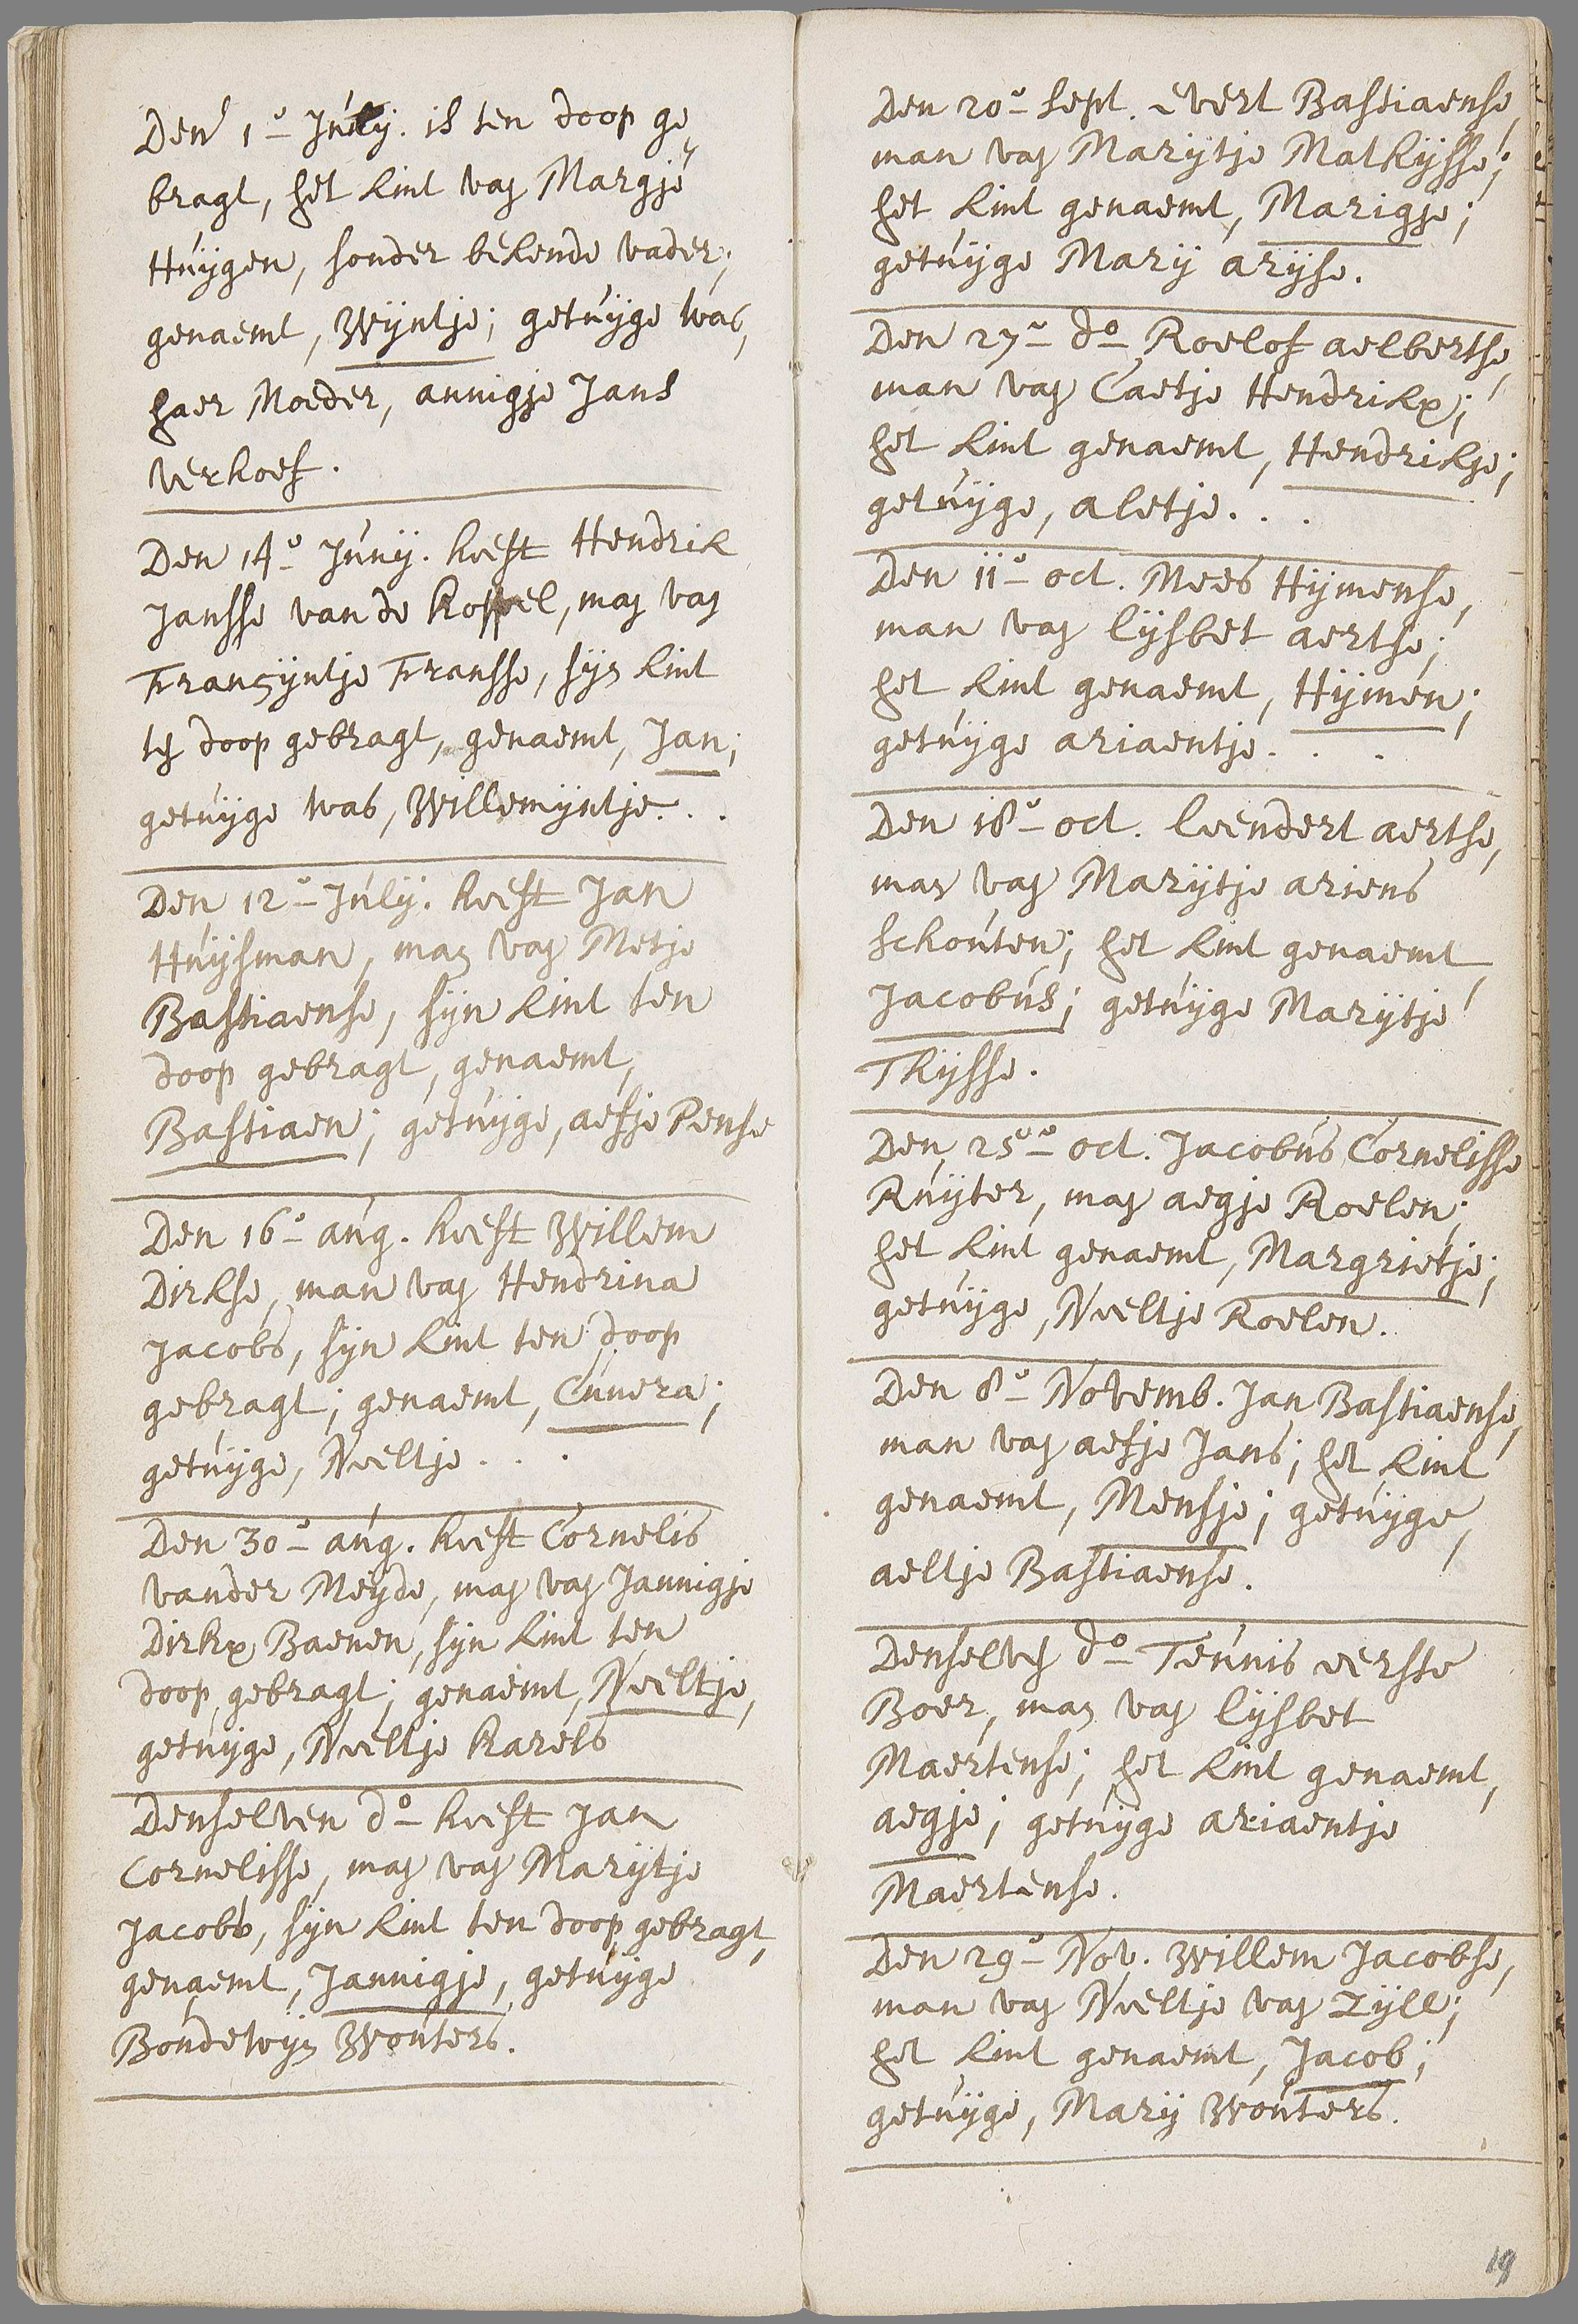 Den 1e July. is ten doop ge„
bragt, het kint van Margje
Huÿgen, sonder bekende vader;
genaemt, Wyntje; getuÿge was,
haer Moeder, annigje Jans
Verhoef.
Den 14e Junÿ. heeft Hendrik
Jansse van de Koppel, man van
Francÿntje Fransse, sÿn kint
ten doop gebragt, genaemt, Jan;
getuÿge was, Willemÿntje. . .
Den 12e Julÿ. heeft Jan
Huÿsman, man van Metje
Bastiaense, sÿn kint ten
doop gebragt, genaemt,
Bastiaen; getuÿge, aefje Pense
Den 16e aug. heeft Willem
Dirkse, man van Hendrina
Jacobs, sÿn kint ten doop
gebragt; genaemt, Cunera;
getuÿge, Neeltje . . .
Den 30e aug. heeft Cornelis
vander Meÿde, man van Jannigje
Dirkx Baenen, sÿn kint ten
doop gebragt; genaemt, Neeltje,
getuÿge, Neeltje Karels
Denselven do heeft Jan
Cornelisse, man van Marÿtje
Jacobs, sÿn kint ten doop gebragt,
genaemt, Jannigje, getuÿge
Boudewÿn Wouters.
Den 20e sept. evert Bastiaense,
man van Marÿtje Mathÿsse;
het kint genaemt, Marigje;
getuÿge Marÿ arÿse.
Den 27e do Roelof aelbertse,
man van Caetje Hendrikx;
het kint genaemt, Hendrikje;
getuÿge, aletje. . .
Den 11e oct. Mees Hÿmense,
man van lÿsbet aertse;
het kint genaemt, Hÿmen;
getuÿge ariaentje. . .
Den 18e oct. leendert aertse,
man van Marÿtje ariens
schouten; het kint genaemt
Jacobus; getuÿge Marÿtje
Thÿsse.
Den 25e oct. Jacobus Cornelisse
Ruÿter, man aegje Roelen;
het kint genaemt, Margrietje;
getuÿge, Neeltje Roelen.
Den 8e Novemb. Jan Bastiaense,
man van aefje Jans; het kint
genaemt, Mensje; getuÿge,
aeltje Bastiaense.
Denselven do Teunis eerste
Boer, man van lÿsbet
Maertense; het kint genaemt,
aegje; getuÿge ariaentje
Maertense.
Den 29e Nov. Willem Jacobse,
man van Neeltje van Zÿll;
het kint genaemt, Jacob;
getuÿge, Marÿ Wouters.
19